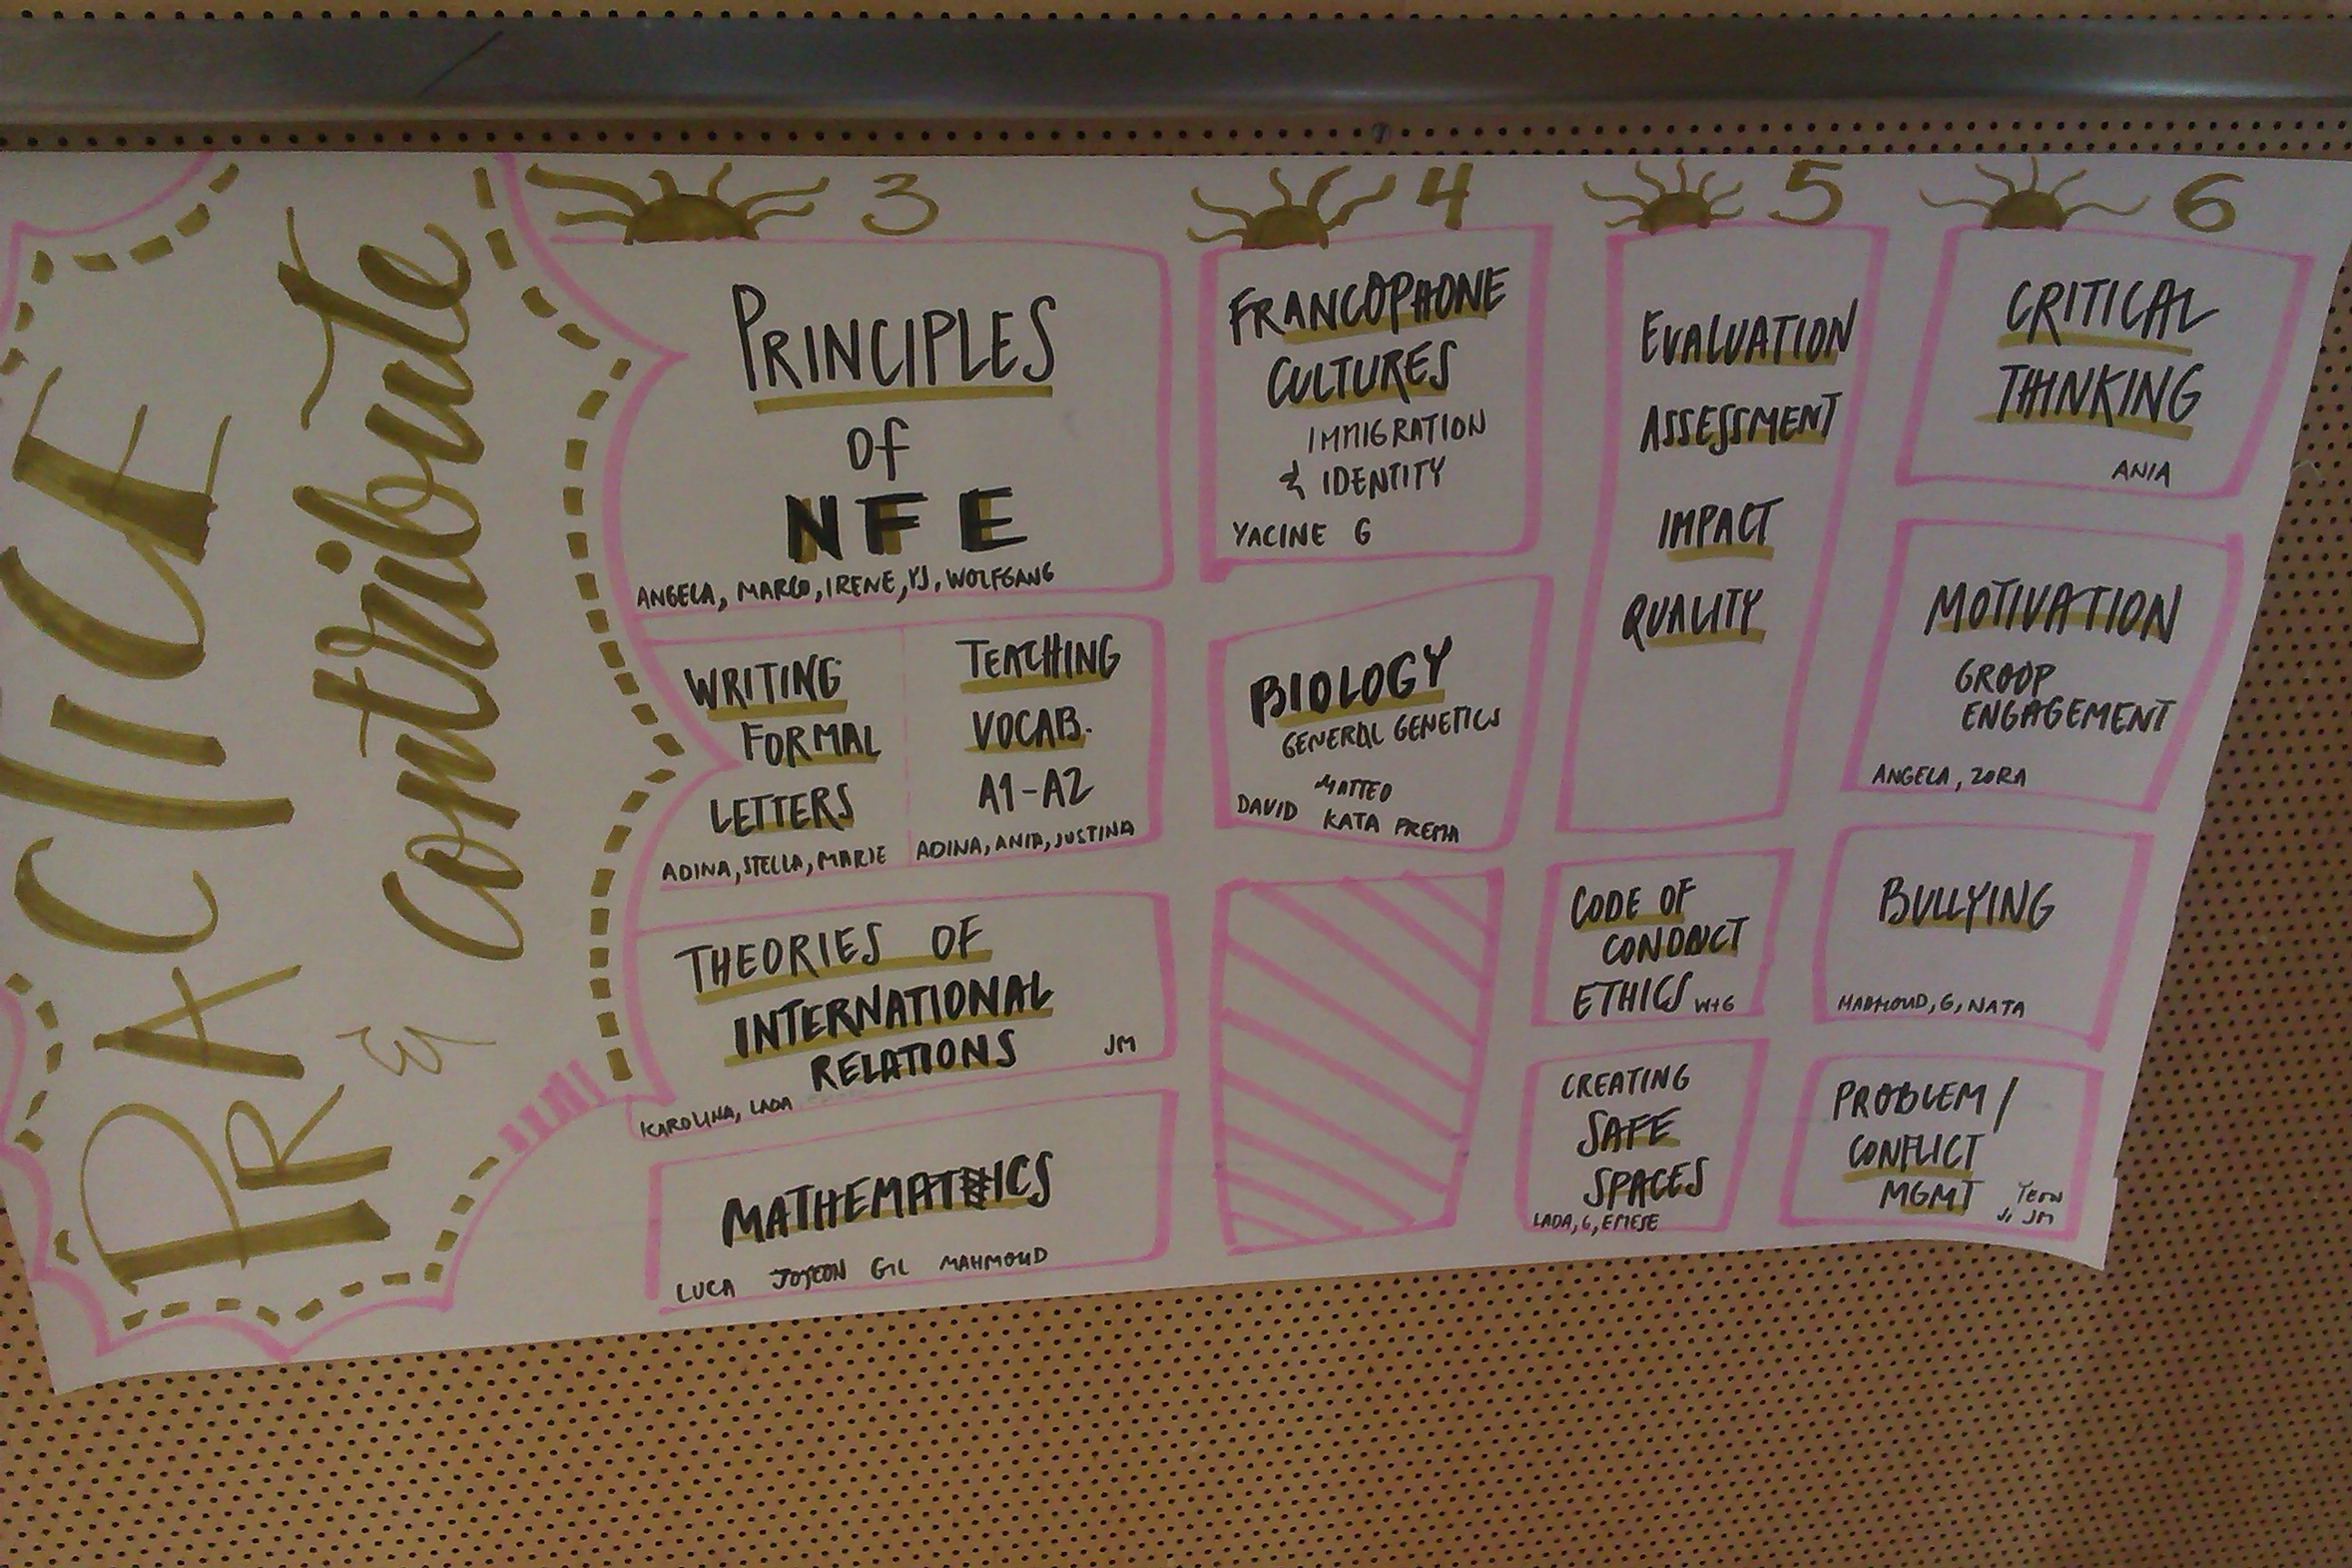 PRACTICE
& contribute
3
PRINCIPLES
of
NFE
ANGELA, MARCO, IRENE, YJ, WOLFGANG
WRITING
FORMAL
LETTERS
ADINA, STELLA, MARIE
TEACHING
VOCAB.
A1-A2
ADINA, ANIA, JUSTINA
THEORIES OF
INTERNATIONAL
RELATIONS
JM
KAROLINA, LADA
MATHEMATICS
LUCA JOYEON GIL MAHMOUD
4
FRANCOPHONE
CULTURES
IMMIGRATION
& IDENTITY
YACINE G
BIOLOGY
GENERAL GENETICS
MATTEO
DAVID KATA PREMA
5
EVALUATION
ASSESSMENT
IMPACT
QUALITY
CODE OF
CONDUCT
ETHICS W+G
CREATING
SAFE
SPACES
LADA, G, EMESE
6
CRITICAL
THINKING
ANIA
MOTIVATION
GROUP
ENGAGEMENT
ANGELA, ZORA
BULLYING
MAHMOUD, G, NATA
PROBLEM /
CONFLICT
MGMT
JM